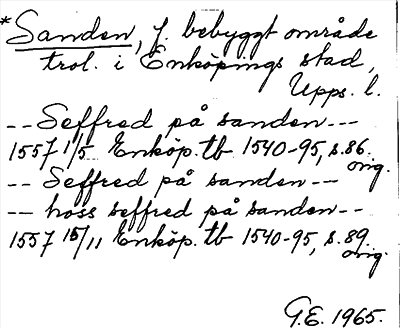 *Sanden, f. bebyggt område
trol. i Enköpings stad,
Upps. l.
-- Seffred på sanden ---
1557 1/5 Enköp. tb 1540-95, s. 86.
orig.
-- Seffred på sanden ---
-- hoss seffred på sanden --
1557 15/11 Enköp. tb 1540-95, s. 89.
orig.
G.E. 1965.